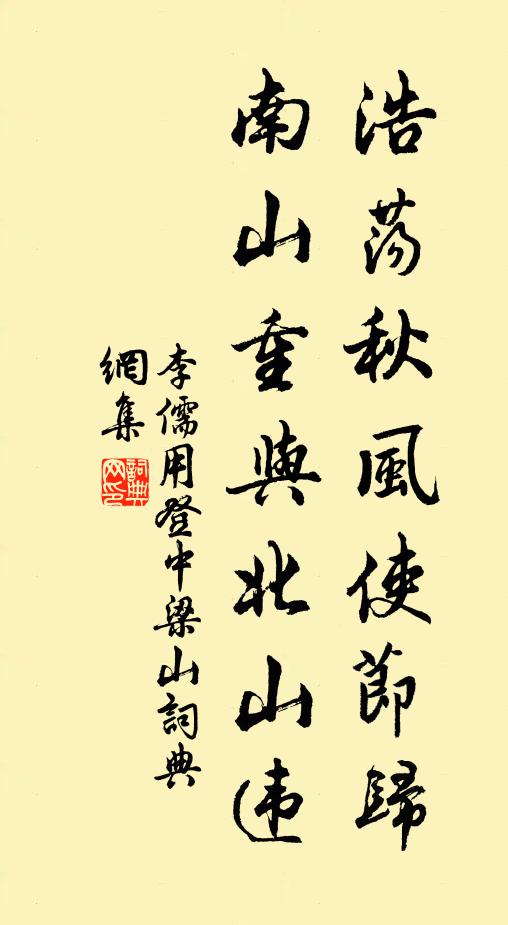 浩蕩秋風使節歸
南山重與北山违
李儒用登中梁山詞典
網集
詞典網印